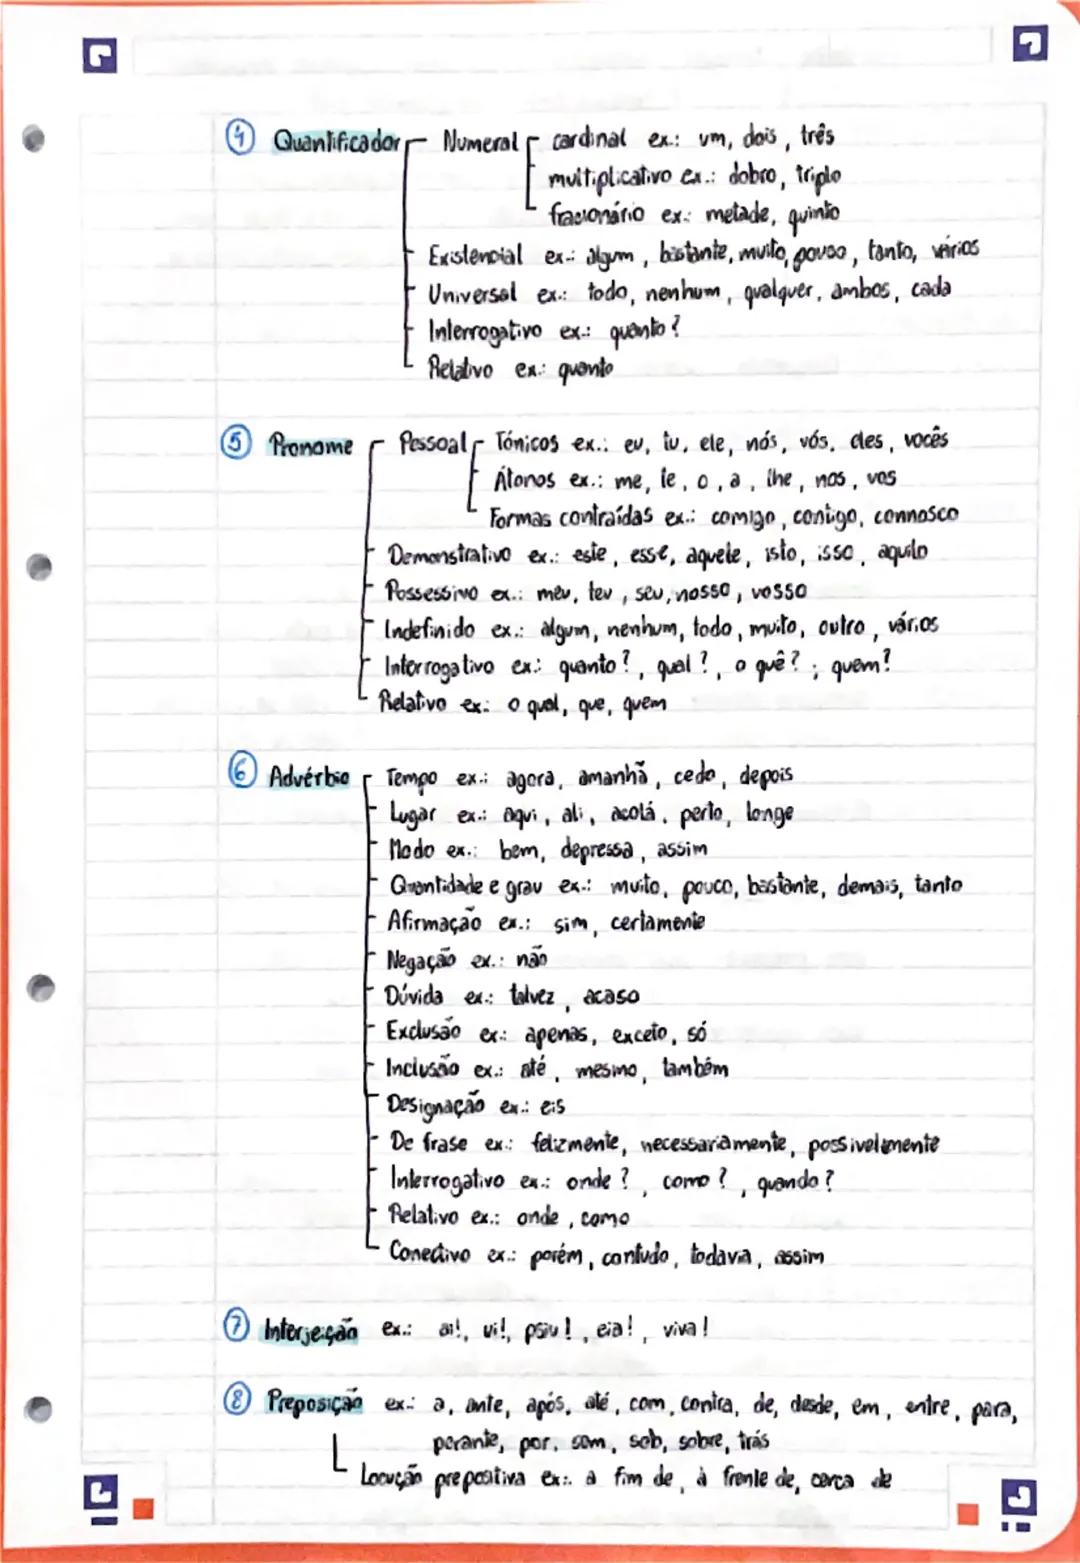 ④ Quantificador Numeral cardinal ex.: um, dois, três
multiplicativo ex.: dobro, triplo
fracionário ex.: metade, quinto
Existencial ex.: algum, bastante, muito, pouco, tanto, vários
Universal ex.: todo, nenhum, qualquer, ambos, cada
Interrogativo ex.: quanto?
Relativo ex.: quanto
⑤ Pronome Pessoal Tónicos ex.: eu, tu, ele, nós, vós, eles, vocês
Átonos ex.: me, te, o, a, lhe, nos, vos
Formas contraídas ex.: comigo, contigo, connosco
Demonstrativo ex.: este, esse, aquele, isto, isso, aquilo
Possessivo ex.: meu, teu, seu, nosso, vosso
Indefinido ex.: algum, nenhum, todo, muito, outro, vários
Interrogativo ex.: quanto?, qual?, o quê?, quem?
Relativo ex.: o qual, que, quem
⑥ Advérbio Tempo ex.: agora, amanhã, cedo, depois
Lugar ex.: aqui, ali, acolá, perto, longe
Modo ex.: bem, depressa, assim
Quantidade e grau ex.: muito, pouco, bastante, demais, tanto
Afirmação ex.: sim, certamente
Negação ex.: não
Dúvida ex.: talvez, acaso
Exclusão ex.: apenas, exceto, só
Inclusão ex.: até, mesmo, também
Designação ex.: eis
De frase ex.: felizmente, necessariamente, possivelmente
Interrogativo ex.: onde?, como?, quando?
Relativo ex.: onde, como
Conectivo ex.: porém, contudo, todavia, assim
⑦ Interjeição ex.: ai!, ui!, psiu!, eia!, viva!
⑧ Preposição ex.: a, ante, após, até, com, contra, de, desde, em, entre, para,
perante, por, sem, sob, sobre, trás
Locução prepositiva ex.: a fim de, à frente de, cerca de